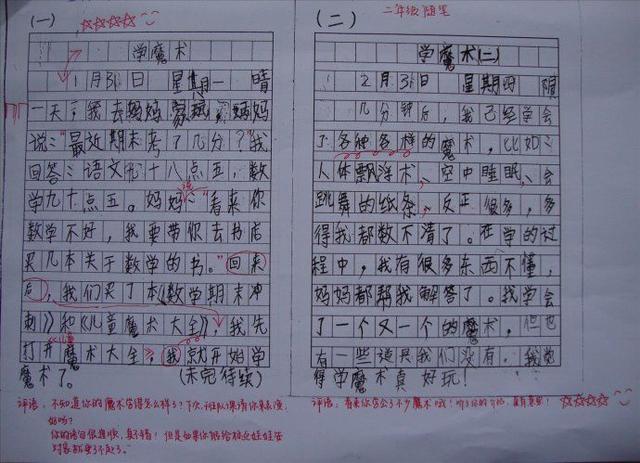 (一)
学魔术
1月31日 星期一 晴
一天,我去妈妈家玩,妈妈
说:"最放期末考了几分?"我
回答:语文九十八点五,数
学九十点五。妈妈说:"看来你
数学不好,我要带你去书店
买几本关于数学的书。"回来
后,我们买了本《数学期末冲
刺》和《儿童魔术大全》,我先
打开魔术大全,我就开始学
魔术了。 (未完待续)
评语:不知道你的魔术学得怎么样了?下次
好吗?
你的语句很通顺,真不错!但是如果你能给
对象都要了不起了。
二年级随笔
(二)
学魔术(二)
2月31日 星期四 阴
几分钟后,我已经学会
了各种各样的魔术,比如:
人体飘浮术、空中睡眠、会
跳舞的纸条,反正很多,多
得我都数不清了。在学的过
程中,我有很多东西不懂,
妈妈都帮我解答了。我学会
了一个又一个的魔术,但也
有一些道具我们没有,我觉
得学魔术真好玩!
评语:看来你学会了不少魔术哦!